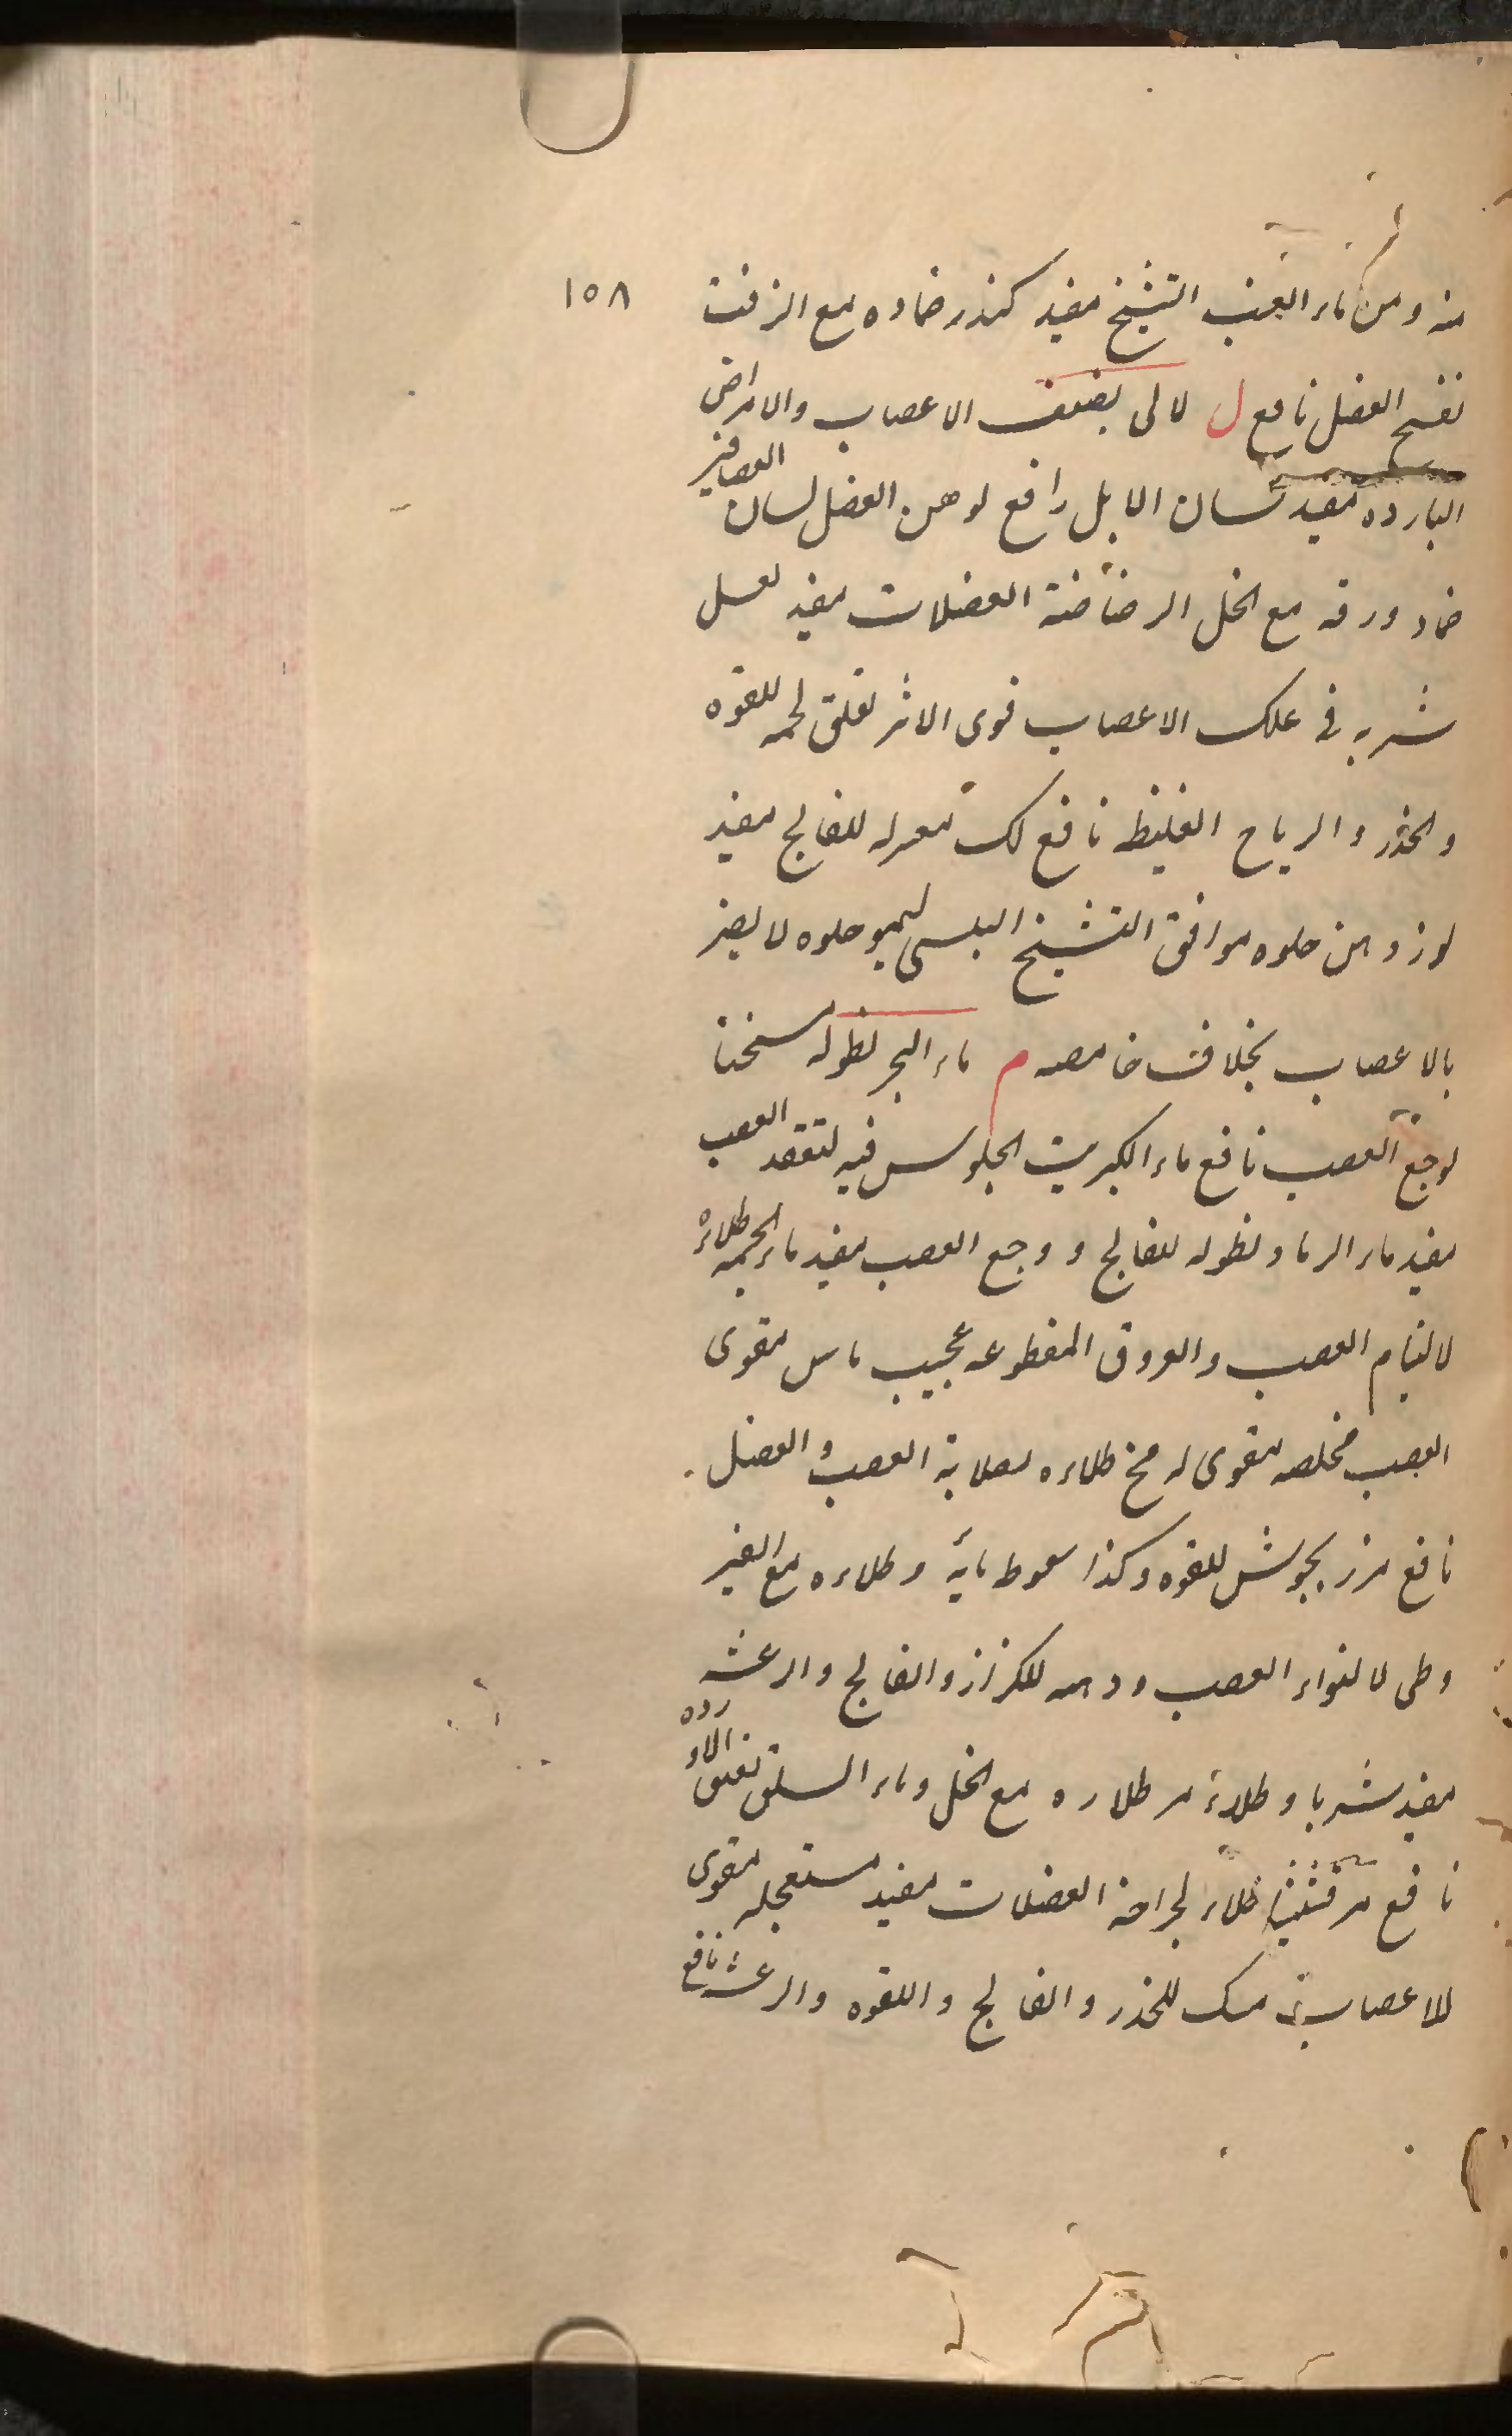 ١٥٨
منه ومن ماء العنب التشنج مفيد كندر ضماده مع الزفت
نفسخ العضل نافع ل لالى بضعف الاعصاب والامراض
البارده مفيد لسان الابل رافع لوهن العضل لسان العصافير
ضماد ورقه مع الخل الرضاضة العضلات مفيد لعسل
شربه فى علك الاعصاب قوى الاثر لقلق لحمه للقوه
والخدر والرياح الغليظ نافع لك للفالج مفيد
لوز دهن حلوه موافق التشنج اليبسى ليمو حلوه لا يضر
بالاعصاب بخلاف حامضه م ماء البحر نطوله سخنا
لوجع العصب نافع ماء الكبريت الجلوس فيه لتعقد العصب
مفيد ماء الرماد نطوله للفالج و وجع العصب مفيد ماء الجمه طلاءً
لالتيام العصب والعروق المقطوعه عجيب ماس مقوى
العصب مخلصه مقوى له مخ طلاءه لصلابة العصب و العضل
نافع مرزنجوش للقوه وكذا سعوط مائه وطلاءه مع الغير
وطى لالتواء العصب ودهنه للكزاز والفالج والرعشه
مفيد شربا وطلاءً مر طلاءه مع الخل وماء السلق
نافع مرقشيثا طلاء لجراحة العضلات مفيد مستعجله مقوى
للاعصاب مسك للخدر والفالج واللقوه والرعشه نافع